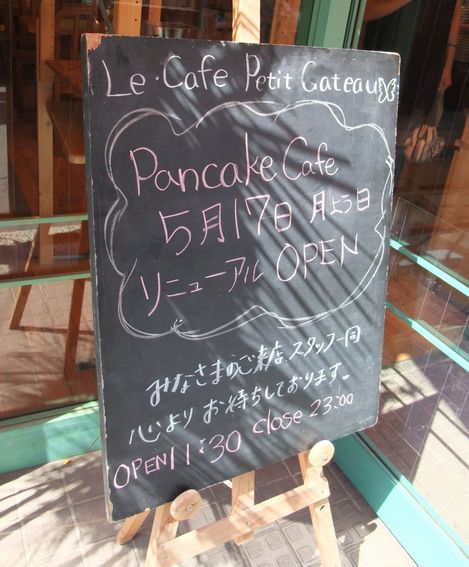 Le・Cafe Petit Gateau
Pancake Cafe
5月17日 月よう日
リニューアル OPEN
みなさまのご来店、スタッフ一同
心よりお待ちしております。
OPEN 11:30 close 23:00